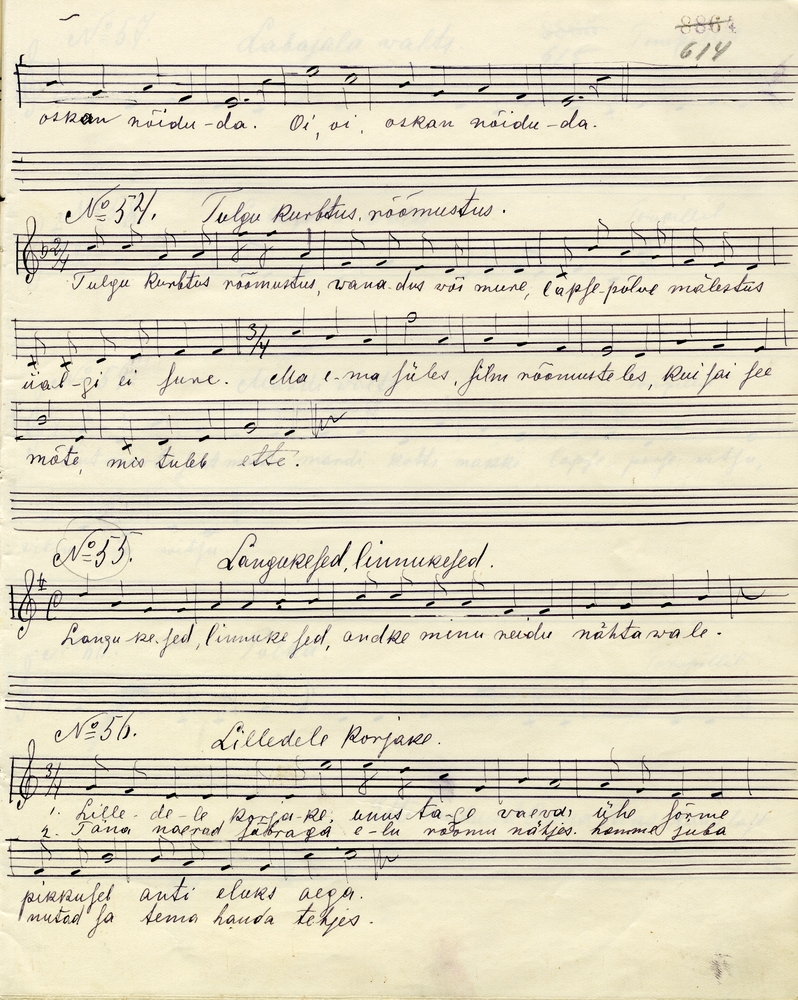 8864
614
oskan nõidu-da. Oi, oi, oskan nõidu-da.
№ 54. Tulgu kurbtus, rõõmustus.
2/4
Tulgu kurbtus rõõmustus, wana-dus või mure, lapse-põlwe mälestus
3/4
iial-gi ei sure. Ma e-ma süles, silm rõõmusteles, kui sai see
mõte, mis tuleb ette.
№ 55. Langukesed, linnukesed.
Langu-ke-sed, linnuke sed, andke minu neidu nähtawale.
№ 56. Lilledele korjake.
3/4
1. Lille-de-le korja-ke, unus-ta-ge vaeva: ühe sõrme
2. Täna naerad sõbraga e-lu rõõmu nähjes. homme juba
pikkusel anti eluks aega.
nutad sa tema hauda tehjes.